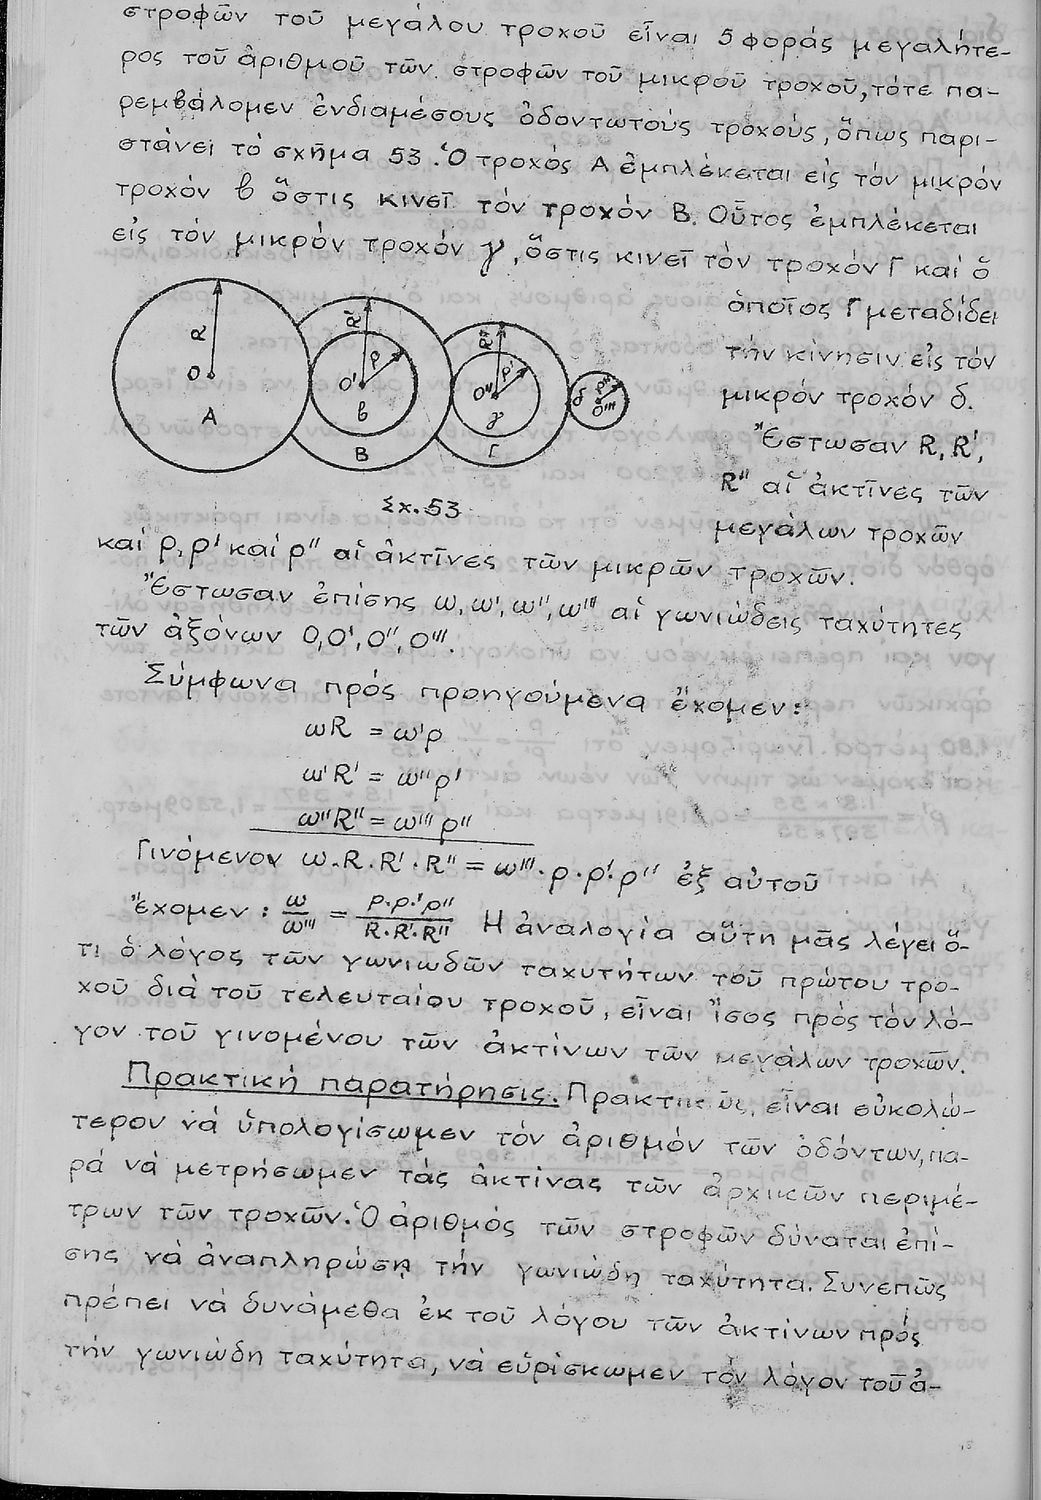 στροφῶν τοῦ μεγάλου τροχοῦ εἶναι 5 φοράς μεγαλήτε-
ρος τοῦ ἀριθμοῦ τῶν στροφῶν τοῦ μικροῦ τροχοῦ, τότε πα-
ρεμβάλομεν ἐνδιαμέσους ὀδοντωτούς τροχούς, ὅπως παρι-
στάνει τό σχῆμα 53. Ὁ τροχός Α ἐμπλέκεται εἰς τόν μικρόν
τροχόν β ὅστις κινεῖ τόν τροχόν Β. Οὗτος ἐμπλέκεται
εἰς τόν μικρόν τροχόν γ, ὅστις κινεῖ τόν τροχόν Γ καί ὁ
ὁποῖος Γ μεταδίδει
τήν κίνησιν εἰς τόν
μικρόν τροχόν δ.
Ἔστωσαν R, R',
R'' αἱ ἀκτῖνες τῶν
μεγάλων τροχῶν
R
O
A
R'
ρ
O'
β
B
R''
ρ'
O''
γ
Γ
δ
ρ''
O'''
Σχ. 53
καί ρ, ρ' καί ρ'' αἱ ἀκτῖνες τῶν μικρῶν τροχῶν.
Ἔστωσαν ἐπίσης ω, ω', ω'', ω''' αἱ γωνιώδεις ταχύτητες
τῶν ἀξόνων Ο, Ο', Ο'', Ο'''.
Σύμφωνα πρός προηγούμενα ἔχομεν:
ωR = ω'ρ
ω'R' = ω''ρ'
ω''R'' = ω'''ρ''
Γινόμενον ω.R.R'.R'' = ω'''.ρ.ρ'.ρ'' ἐξ αὐτοῦ
Ἔχομεν: ω/ω''' = ρ.ρ.'ρ''/R.R'.R'' Ἡ ἀναλογία αὕτη μᾶς λέγει ὅ-
τι ὁ λόγος τῶν γωνιωδῶν ταχυτήτων τοῦ πρώτου τρο-
χοῦ διὰ τοῦ τελευταίου τροχοῦ, εἶναι ἴσος πρός τόν λό-
γον τοῦ γινομένου τῶν ἀκτίνων τῶν μεγάλων τροχῶν.
Πρακτική παρατήρησις. Πρακτικῶς, εἶναι εὐκολώ-
τερον νά ὑπολογίσωμεν τόν ἀριθμόν τῶν ὀδόντων, πα-
ρά νά μετρήσωμεν τάς ἀκτίνας τῶν ἀρχικῶν περιμέ-
τρων τῶν τροχῶν. Ὁ ἀριθμός τῶν στροφῶν δύναται ἐπί-
σης νά ἀναπληρώσῃ τήν γωνιώδη ταχύτητα. Συνεπῶς
πρέπει νά δυνάμεθα ἐκ τοῦ λόγου τῶν ἀκτίνων πρός
τήν γωνιώδη ταχύτητα, νά εὑρίσκωμεν τόν λόγον τοῦ ἀ-